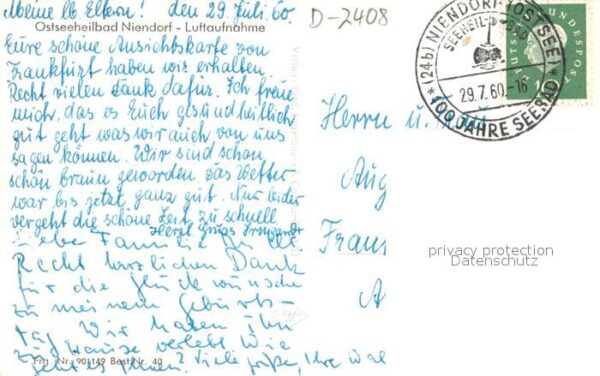 Meine lb Eltern! den 29. Juli. 60.
D-2408
Ostseeheilbad Niendorf - Luftaufnahme
Eure schöne Ansichtskarte von
Frankfurt haben wir erhalten.
Recht vielen Dank dafür. Ich freue
mich, das es Euch gesundheitlich
gut geht was wir auch von uns
sagen können. Wir sind schon
schön braun geworden das Wetter
war bis jetzt ganz gut. Nur leider
vergeht die schöne Zeit zu schnell
Herzl Grüss Irmgard
Liebe Familie
Recht herzlichen Dank
für die Glückwünsche
zu meinem Geburts-
tag Wir haben ihn
zu Hause verlebt Wie
geht es Ihnen? Viele Grüße, Ihre
Frg. Nr. 901149 Best. Nr. 40
(24b) NIENDORF (OSTSEE)
SEEHEIL-
29.7.60.-16
100 JAHRE SEEBAD
DEUTSCHE BUNDESPOST
10
Herrn u.
Aug
Frans
A
privacy protection
Datenschutz